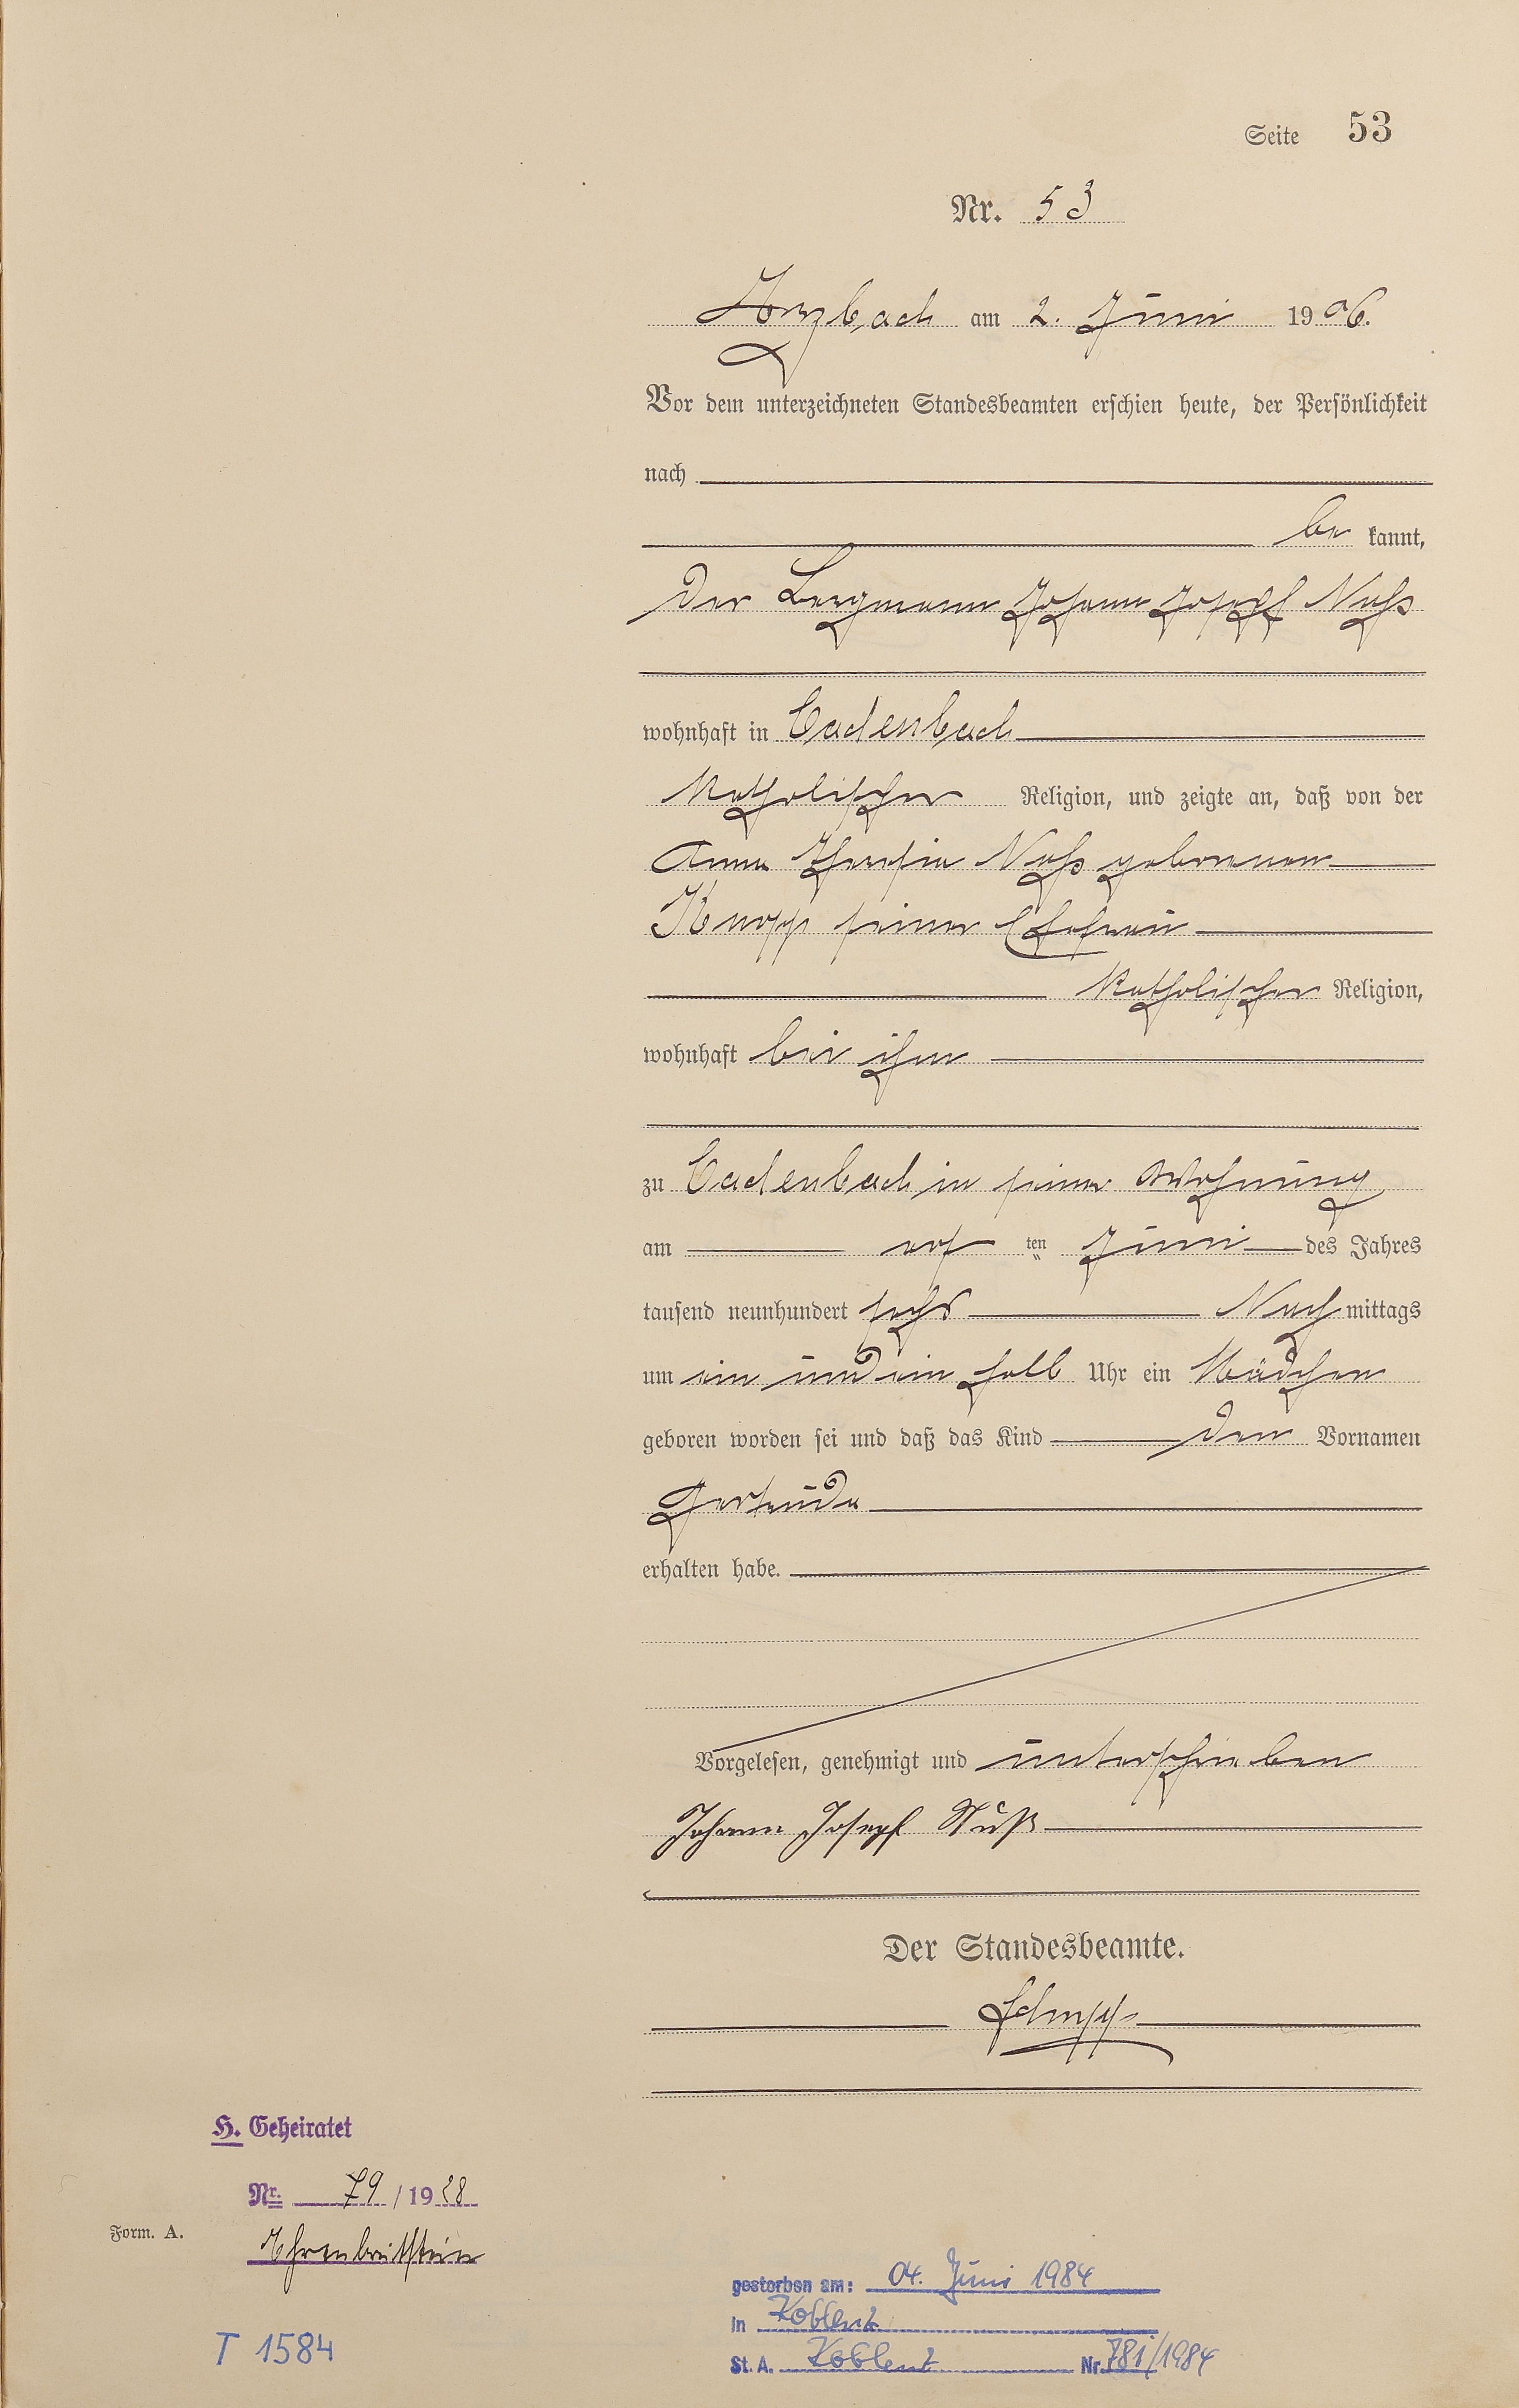 Seite 53
Nr. 53
Arzbach am 2. Juni 1906.
Vor dem unterzeichneten Standesbeamten erschien heute, der Persönlichkeit
nach
be kannt,
der Bergmann Johann Joseph Nuß
wohnhaft in Cadenbach
katholischer Religion, und zeigte an, daß von der
Anna Theresia Nuß geborenen
Knopp seiner Ehefrau
katholischer Religion,
wohnhaft bei ihm
zu Cadenbach in seiner Wohnung
am ersten Juni des Jahres
tausend neunhundert sechs Nachmittags
um ein und ein halb Uhr ein Mädchen
geboren worden sei und daß das Kind den Vornamen
Gertruda
erhalten habe.
Vorgelesen, genehmigt und unterschrieben
Johann Josepf Nuß
Der Standesbeamte.
H. Geheiratet
Nr. 79/1928
Form. A.
Ehrenbreitstein
gestorben am: 04. Juni 1984
in Koblenz
St. A. Koblenz Nr. 781/1984
T 1584